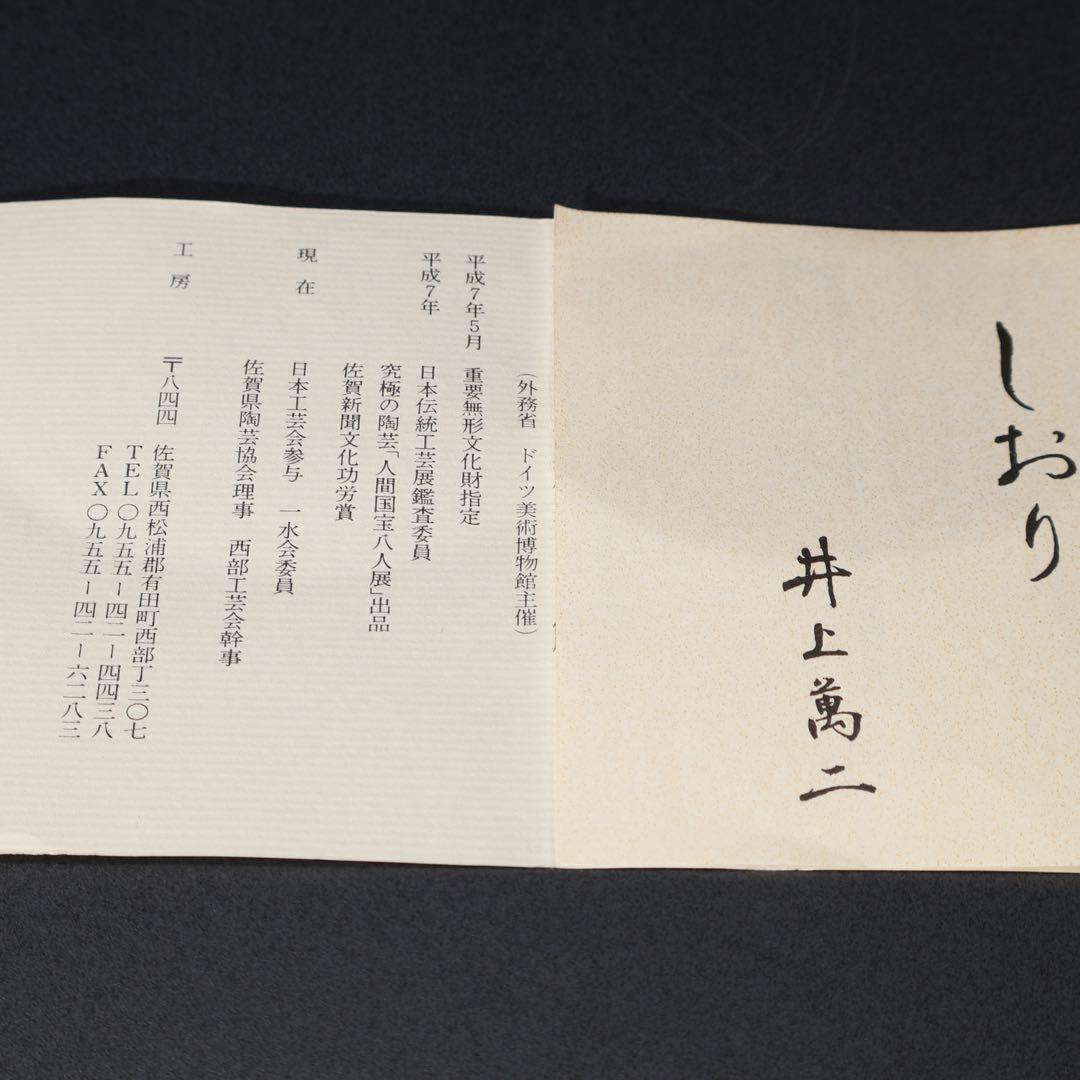 しおり
井上萬二
(外務省 ドイツ美術博物館主催)
平成7年5月 重要無形文化財指定
平成7年 日本伝統工芸展鑑査委員
究極の陶芸「人間国宝八人展」出品
佐賀新聞文化功労賞
現在 日本工芸会参与 一水会委員
佐賀県陶芸協会理事 西部工芸会幹事
工房 〒八四四 佐賀県西松浦郡有田町西部丁三〇七
TEL〇九五五ー四二ー四四三八
FAX〇九五五ー四二ー六二八三